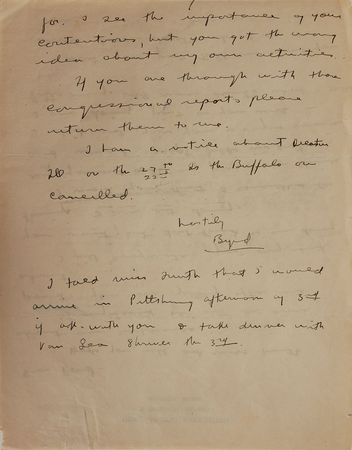 for. I see the importance of your
contentions, but you got the wrong
idea about my own activities.
If you are through with those
congressional reports please
return them to me.
I have a notice about
on the 27th is the Buffalo one
cancelled.
hastily
Byrd
I told miss that I would
arrive in Pittsburg afternoon of 3rd
if ok. with you & take dinner with
Van the 3rd.